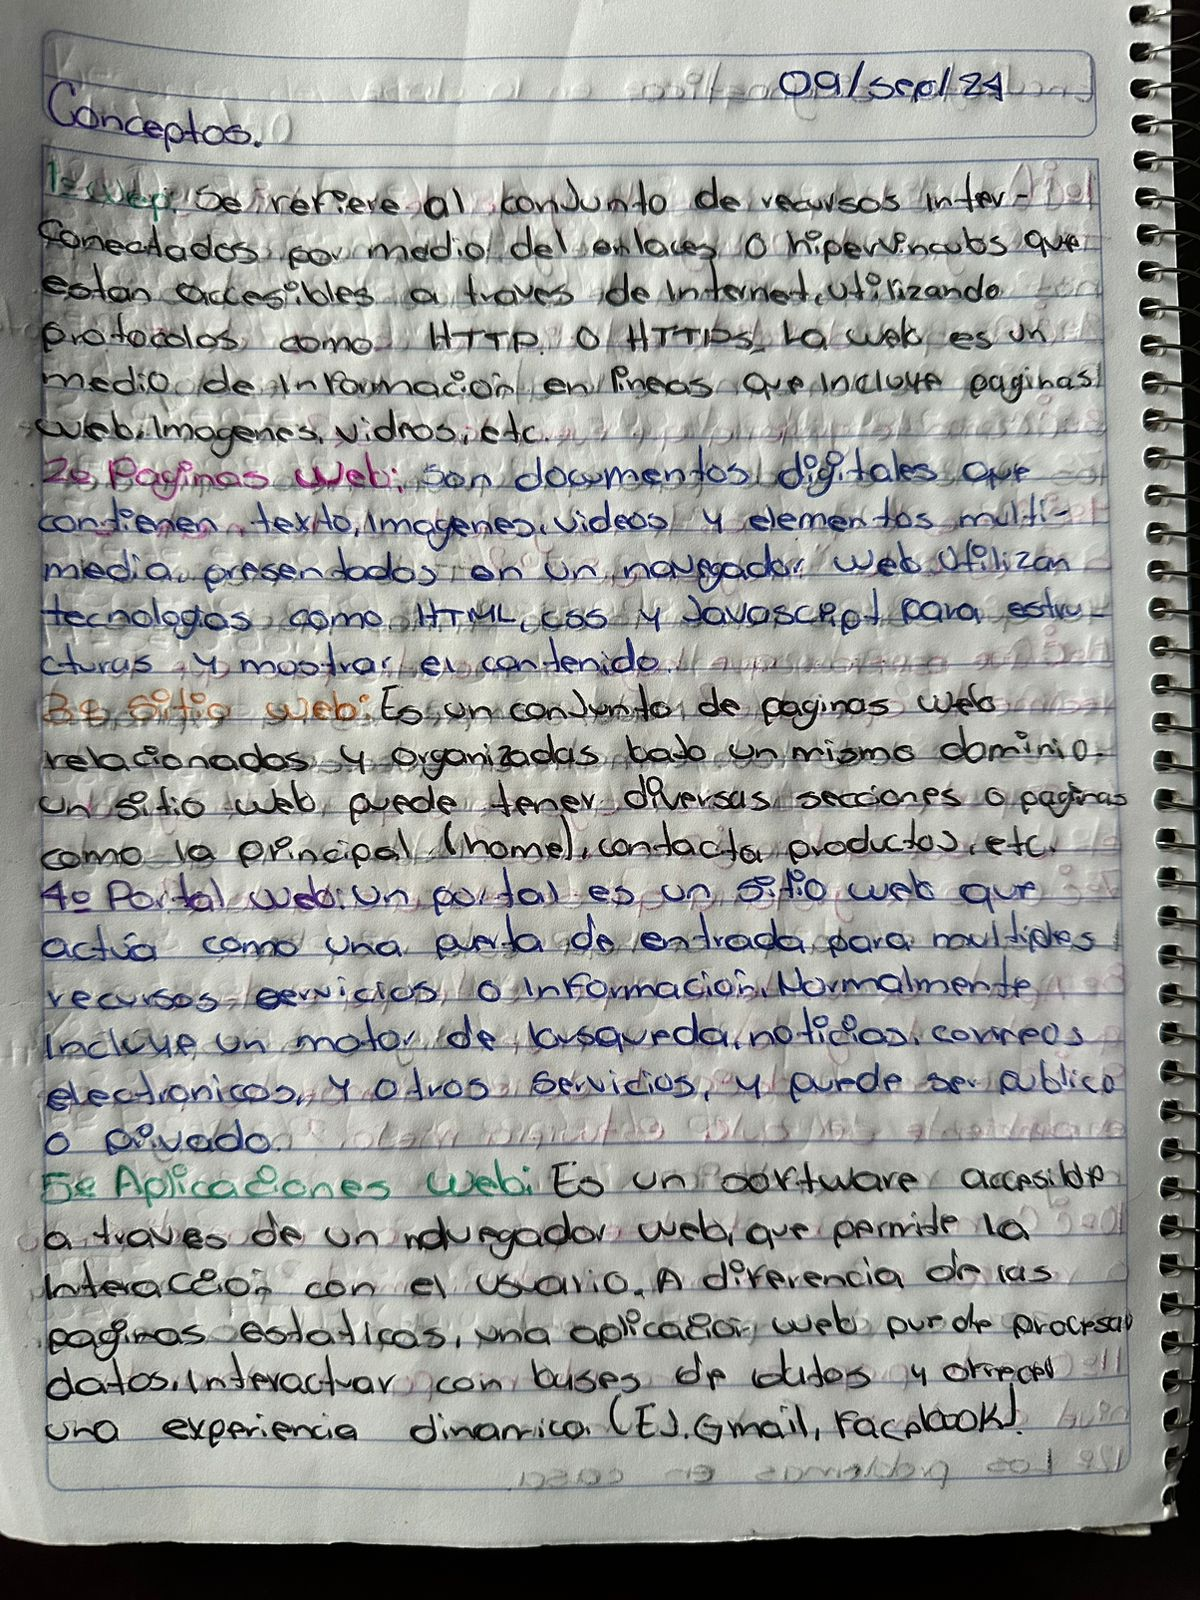 09/sep/24
Conceptos.
1= Wep: Se refiere al conjunto de recursos inter-
Conectados por medio del enlaces o hipervinculos que
estan accesibles a traves de Internet, utilizando
protocolos como HTTP. O HTTPS. La web es un
medio de Informacion en lineas que Incluye paginas
web, Imagenes, vidros, etc.
2o Paginas Web: Son documentos digitales que
contienen texto, Imagenes, videos y elementos multi-
media, presentados en un navegador web. Utilizan
tecnologias como HTML, CSS y Javascript para estru-
cturas y mostrar el contenido.
3o Sitio web: Es un conjunto de paginas web
relacionadas y organizadas bajo un mismo dominio.
Un sitio web puede tener diversas secciones o paginas
como la principal (home), contacta productos, etc.
4o Portal web: Un portal es un sitio web que
actúa como una puerta de entrada para multiples
recursos servicios o Informacion. Normalmente
Incluye un motor de busqueda, noticias, correos
electronicos, y otros servicios, y puede ser publico
o privado.
5o Aplicaciones web: Es un software accesible
a traves de un navegador web, que permite la
Interaccion con el usuario. A diferencia de las
paginas estaticas, una aplicacion web puede procesar
datos, Interactuar con bases de datos y ofrecer
una experiencia dinamica. (EJ. Gmail, Facebook).